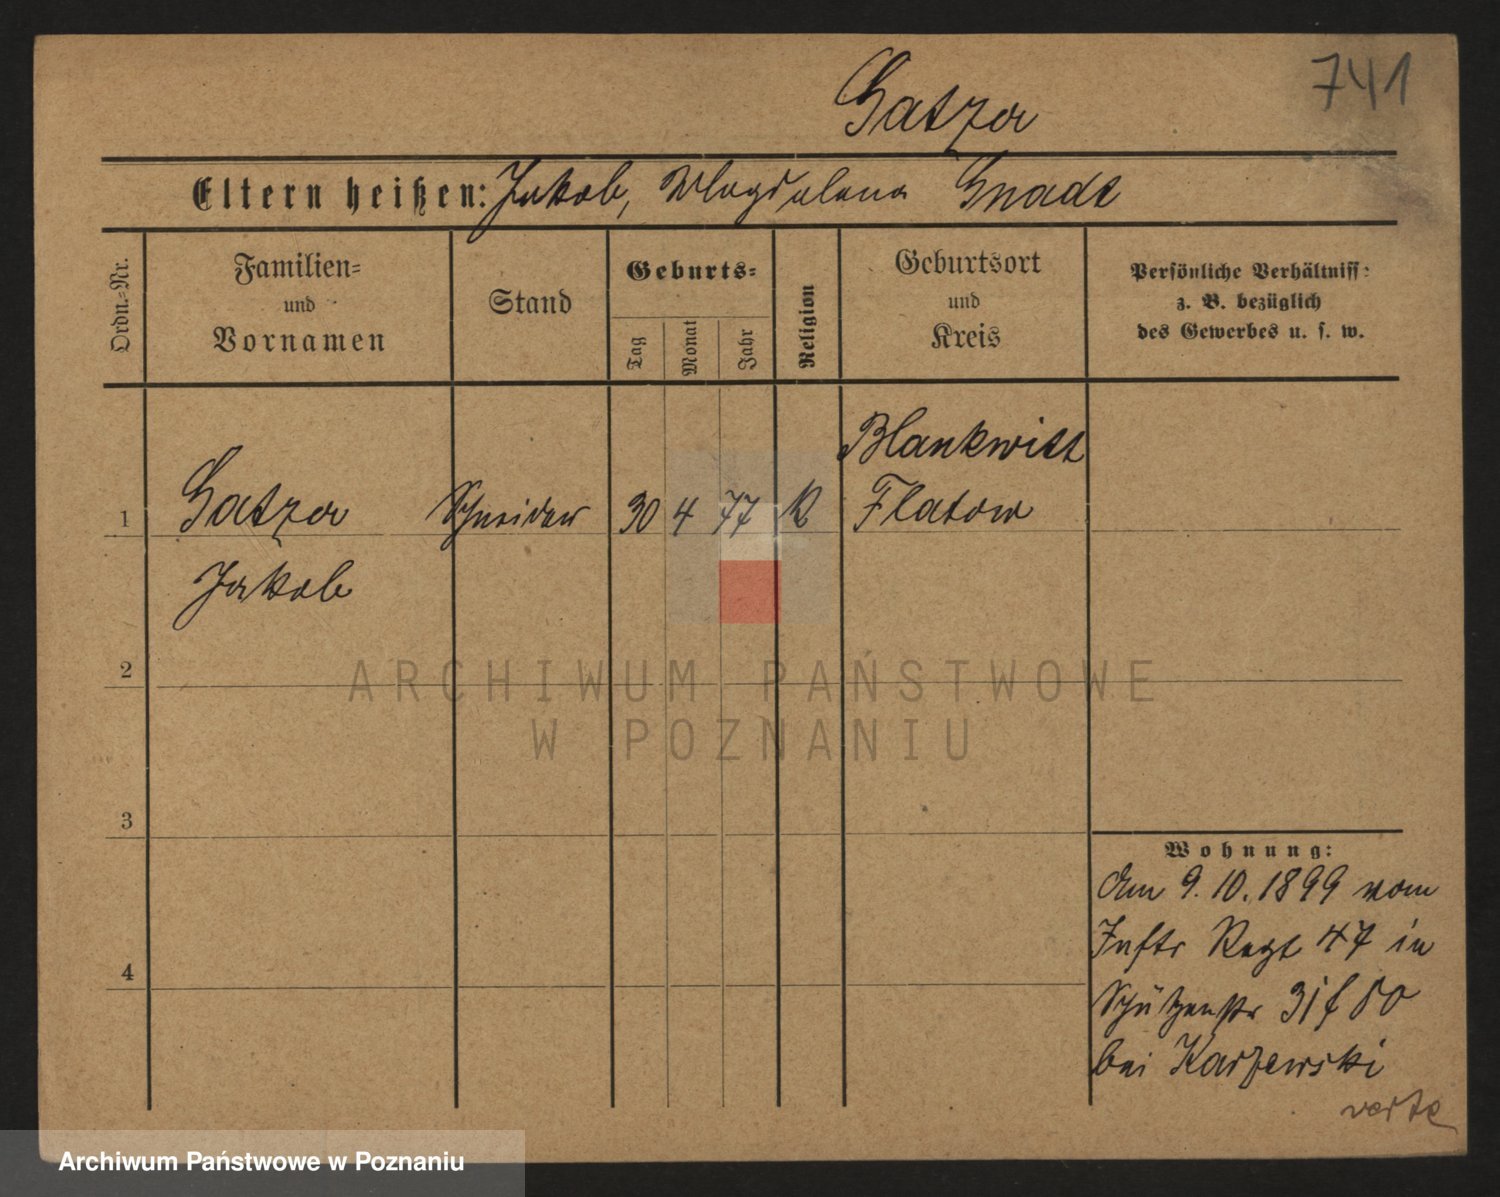 741
Gatza
Eltern heißen: Jakob, Magdalena Gnadt
Ordn.-Nr.
Familien-
und
Vornamen
Stand
Geburts-
Tag
Monat
Jahr
Religion
Geburtsort
und
Kreis
Persönliche Verhältniss:
z. B. bezüglich
des Gewerbes u. s. w.
1
Gatza
Jakob
Schneider
30
4
77
K
Blankwitt
Flatow
2
3
4
Wohnung:
Am 9.10.1899 vom
Inftr Regt 47 in
Schützenstr 31
bei Karzewski
verte
ARCHIWUM PAŃSTWOWE
W POZNANIU
Archiwum Państwowe w Poznaniu